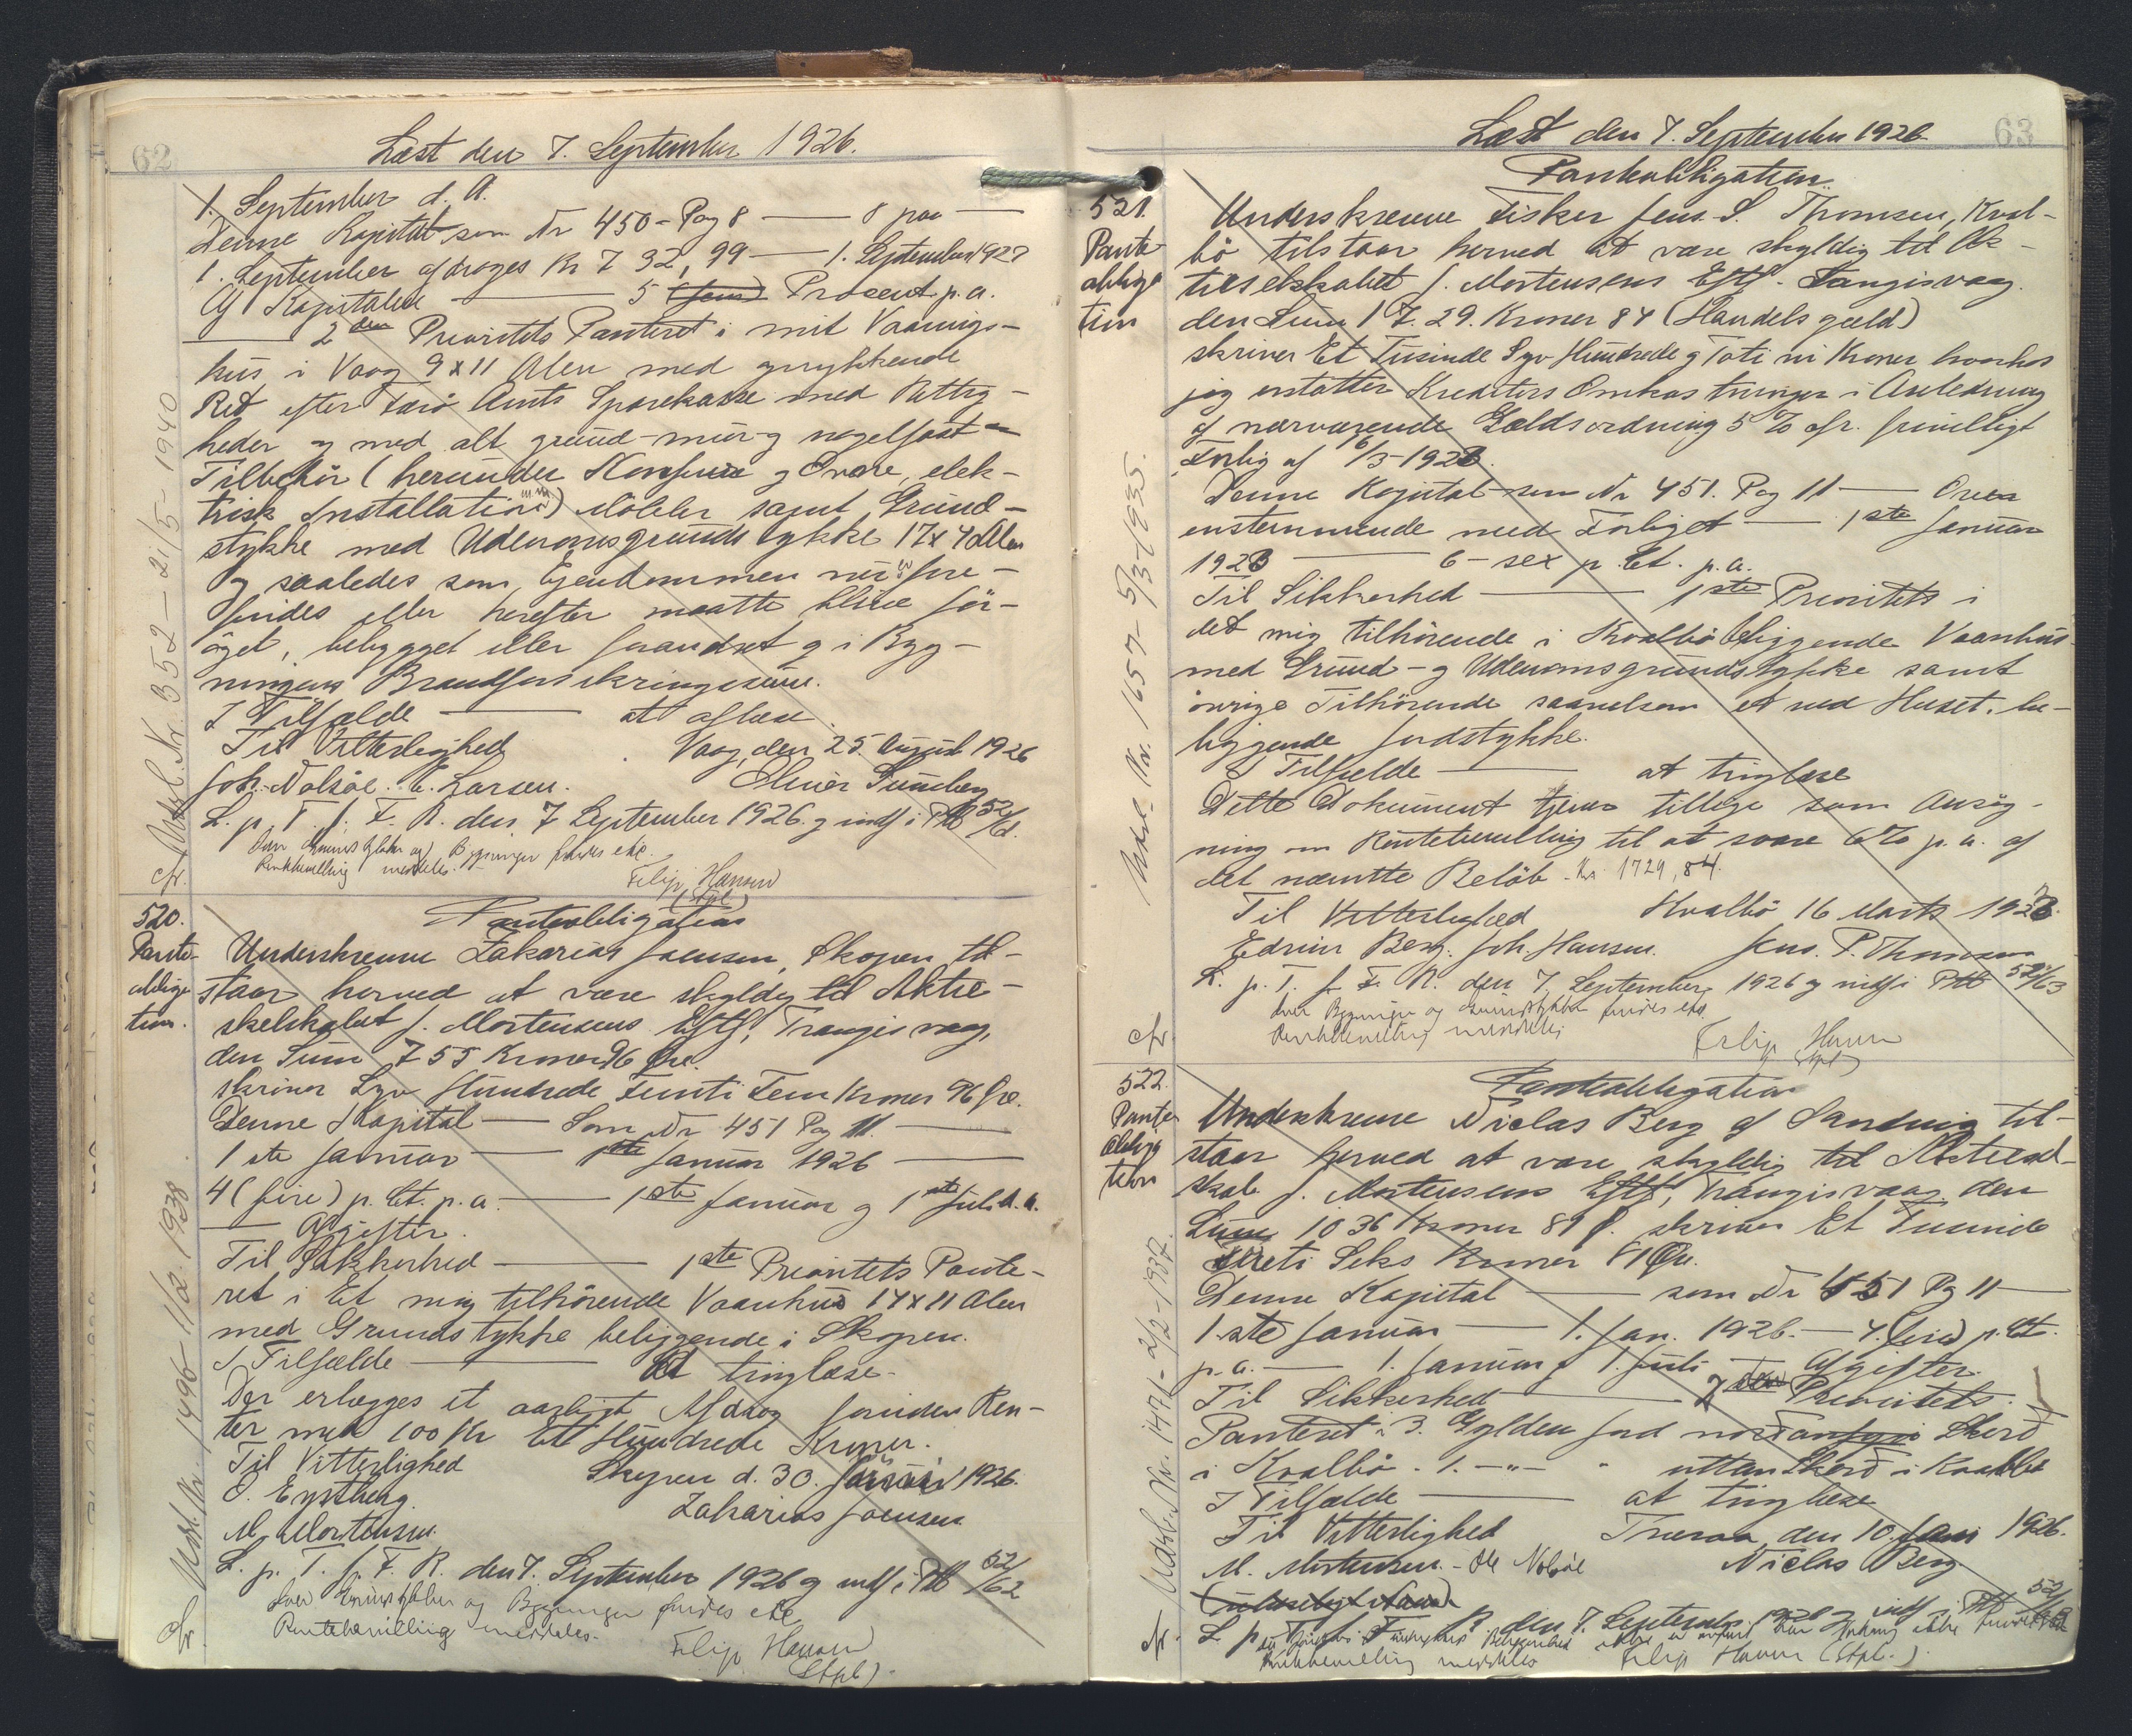 62
Læst den 7. September 1926.
1. September d. A.
Denne Kapital som Nr 450 - Pag 8 — 8 paa —
1. September afdrages Kr 732,99 — 1. September 1927
Af Kapitalen — 5 (fem) Procent p.a.
— 2den Prioritets Panteret i mit Vaanings-
hus i Vaag 9 x 11 Alen med oprykkende
Ret efter Færø Amts Sparekasse med Rettig-
heder og med alt grund-mur-og nagelfast
Tilbehør (herunder Komfure og Ovne, elek-
trisk Installation m.m.) Møbler samt Grund-
stykke med Udenomsgrundstykke 17 x 4 Alen
og saaledes som Ejendommen nu fore-
findes eller herefter maatte blive for-
øget, bebygget eller forandret og i Byg-
ningens Brandforsikringssum.
I Tilfælde — at aflæse.
Til Vitterlighed Vaag, den 25. August 1926
Joh. Nolsøe. E. Larsen.
L. p. T. f. F. R. den 7 September 1926. og indf i Ptb 52/62.
Over Grundstykker og Bygninger findes ekc.
Rentebevilling meddeles.
Filip Hansen
(Stpl)
cfr. Udsl. Nr. 352 - 21/5-1940
520.
Pante-
obliga
tion.
Panteobligation
Underskrevne Zakarias Joensen, Skopen til-
staar herved at være skyldig til Aktie-
skelskabet J. Mortensens Eftf., Trangisvaag,
den Sum 755 Kroner 96 Øre.
skriver Syv Hundrede Femti Fem Kroner 96 Øre.
Denne Kapital — Som Nr 451 Pag 11. —
1ste Januar — 1ste Januar 1926 —
4 (fire) p. Ct. p.a. — 1ste Januar og 1ste Juli d.a.
— Afgifter.
Til Sikkerhed — 1ste Prioritets Pante-
ret i Et mig tilhørende Vaanhus 14 x 11 Alen
med Grundstykke beliggende i Skopen.
I Tilfælde — At tinglæse.
Der erlægges et aarligt Afdrag foruden Ren-
ter med 100 Kr Ett Hundrede Kroner.
Til Vitterlighed Skopen d. 30. Januar 1926.
O. Eystberg. Zakarias Joensen
M. Mortensen.
L. p. T. f. F. R. den 7. September 1926 og indf i Ptb 52/62
Over Grundstykker og Bygninger findes ekc
Rentebevilling meddeles.
Filip Hansen
(Stpl).
cfr. Udsl. Nr. 1496 - 11/2. 1938.
63
Læst den 7. September 1926
Panteobligation.
521.
Pante
obliga
tion
Underskrevne Fisker Jens. S. Thomsen, Kval-
bø tilstaar herved at være skyldig til Ak-
tieselskabet J. Mortensens Eftf. Trangisvaag.
den Sum 17.29. Kroner 84 (Handelsgæld)
skriver Et Tusinde Syv Hundrede og Toti ni Kroner hvorhos
jeg erstatter Kreditors Omkostninger i Anledning
af nærværende Gældsordning 5 % cfr. frivilligt
Forlig af 6/3-1923.
Denne Kapital som Nr 451. Pag 11 — Over
ensstemmende med Forliget — 1ste Januar
1923 — 6 - sex p. Ct. p.a.
Til Sikkerhed — 1ste Prioritets i
det mig tilhørende i Kvalbø beliggende Vaanhus
med Grund- og Udenomsgrundstykke samt
øvrige Tilhørende saavelsom et ved Huset be-
liggende Jordstykke.
I Tilfælde — at tinglæse
Dette Dokument tjener tillige som Ansøg-
ning om Rentebevilling til at svare 6 % p.a. af
det nævnte Beløb. Kr 1729,84.
Til Vitterlighed Kvalbø 16 Marts 1923.
Edvin Berg. Joh. Hansen. Jens. P. Thomsen
L. p. T. f. F. R. den 7. September 1926 og indf i Ptb 52/63
Over Bygninger og Grundstykker findes ekc
Rentebevilling meddeles
Filip Hansen
(Stpl)
cfr Udsl. Nr. 1657 - 5/3-1935.
522.
Pante
obliga
tion
Panteobligation
Underskrevne Niclas Berg af Sandvig til-
staar herved at være skyldig til Aktiesel-
skab J. Mortensens Eftf., Trangisvaag den
Sum 1036 Kroner 81 Ø. skriver Et Tusinde
Treti Seks Kroner 81 Øre.
Denne Kapital — som Nr 451 Pg 11 —
1.ste Januar — 1. Jan. 1926. — 4. (fire) p. Ct.
p.a. — 1. Januar og 1. Juli — Afgifter.
Til Sikkerhed — Prioritets
Panteret i 3. Gylden Jord Skerð
i Kvalbø. 1. —"— " uttan Skerð i Kvalbø
I Tilfælde — at tinglæse
Til Vitterlighed Tveraa, den 10. Jan 1926.
M. Mortensen. - Ole Nolsøe Niclas Berg
L. p. T. f. F. R. den 7. September 1926 og indf i Ptb 52/63
Rentebevilling meddeles Filip Hansen (Stpl.)
cfr. Udsl. Nr. 1471 - 2/2-1937.